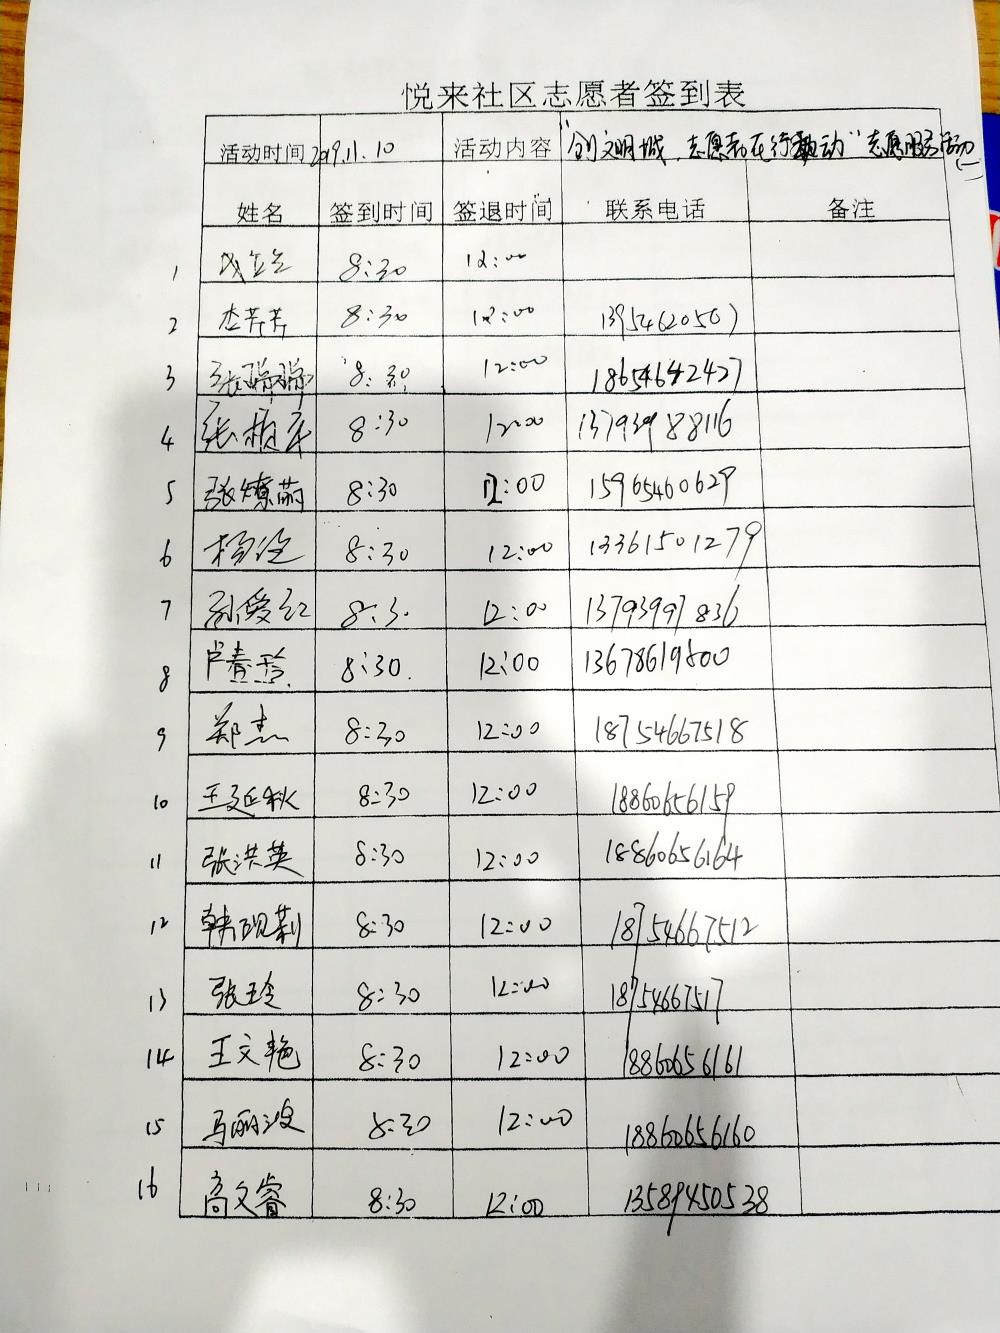 悦来社区志愿者签到表
活动时间 2019.11.10 活动内容 "创文明城,志愿者在行动"志愿服务活动(一)
姓名 签到时间 签退时间 联系电话 备注
1 8:30 12:00
2 杏芳芳 8:30 12:00 13954620507
3 张瑞瑞 8:30 12:00 18654642427
4 张桢庆 8:30 12:00 13793988116
5 张燎萌 8:30 12:00 15965460629
6 杨 8:30 12:00 13361501279
7 孙爱红 8:30 12:00 13793997836
8 卢春玲 8:30 12:00 13678619800
9 郑杰 8:30 12:00 18754667518
10 王延秋 8:30 12:00 18860656159
11 张洪英 8:30 12:00 18860656164
12 韩砚莉 8:30 12:00 18754667512
13 张玲 8:30 12:00 18754667517
14 王文艳 8:30 12:00 18860656161
15 马丽波 8:30 12:00 18860656160
16 高文睿 8:30 12:00 13589450538